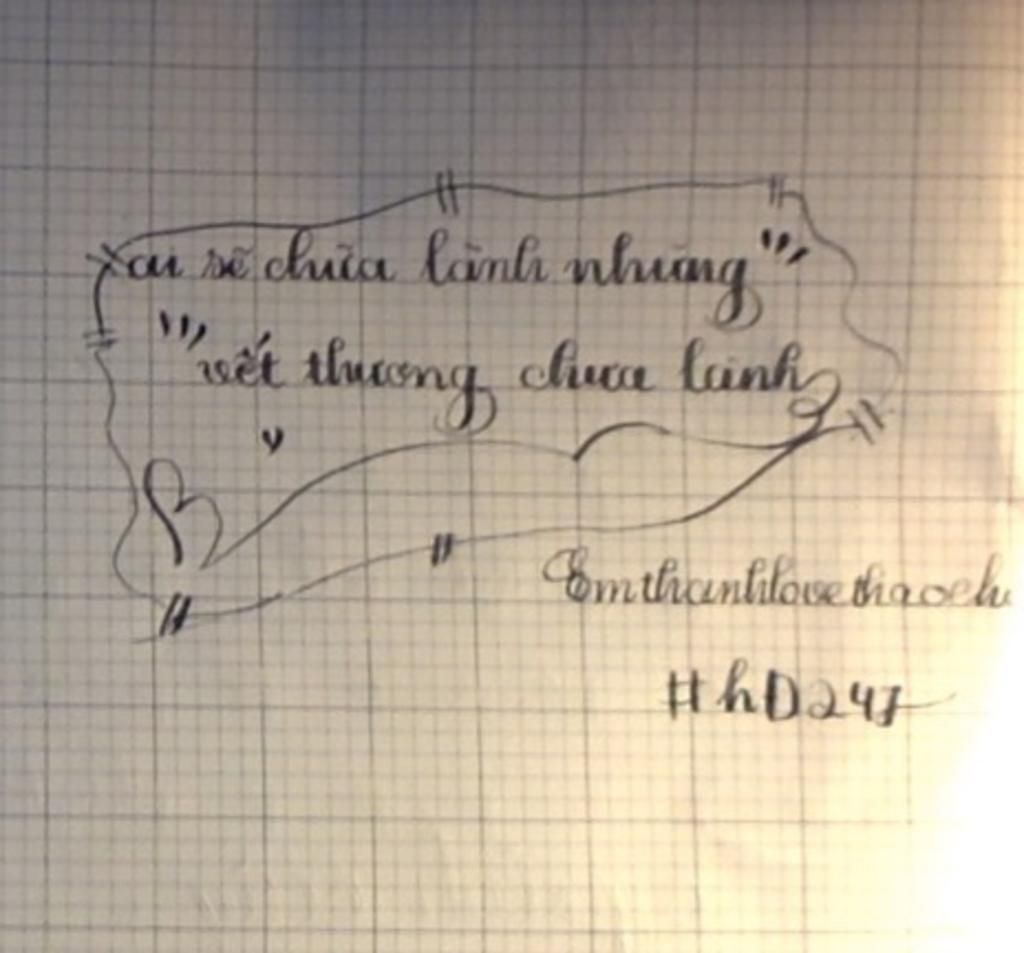 ai sẽ chữa lành những
vết thương chưa lành
Emthanhlovethaoch
#hD247